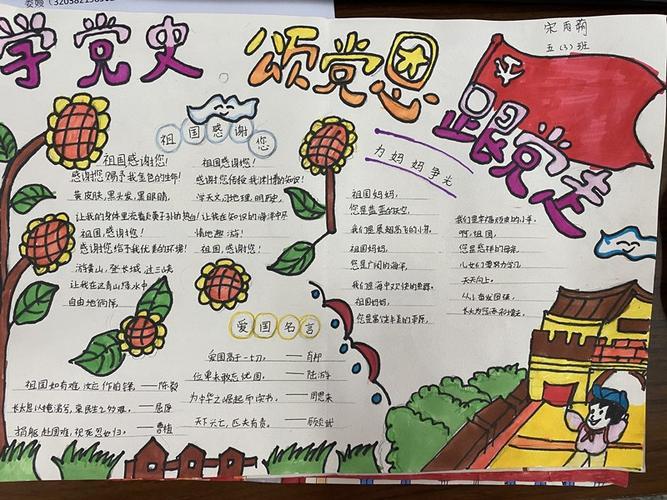 学党史 颂党恩 跟党走
宋雨
五(3)班
祖国感谢您
祖国感谢您!
感谢您赐予我金色的生命!
黄皮肤,黑头发,黑眼睛,
让我的身体里流着炎黄子孙的热血!
祖国,感谢您!
感谢您给予我优美的环境!
游黄山,登长城,过三峡
让我在这青山绿水中
自由地徜徉
祖国感谢您!
感谢您传授我渊博的知识!
学天文,习地理,明历史,
让我在知识的海洋中尽
情地遨游!
祖国,感谢您!
为妈妈争光
祖国妈妈,
您是蓝蓝的天空,
我们是展翅高飞的小鸟,
祖国妈妈,
您是广阔的海洋,
我们是海中欢快的鱼群,
祖国妈妈,
您是富饶丰美的草原,
我们是奔腾欢快的小羊,
啊,祖国,
您是慈祥的母亲,
儿女们要努力学习
天天向上。
爱国名言
爱国高于一切。——肖邦
位卑未敢忘忧国。——陆游
为中华之崛起而读书。——周恩来
天下兴亡,匹夫有责。——顾炎武
祖国如有难,汝应作前锋。——陈毅
长太息以掩涕兮,哀民生之多艰。——屈原
捐躯赴国难,视死忽如归。——曹植